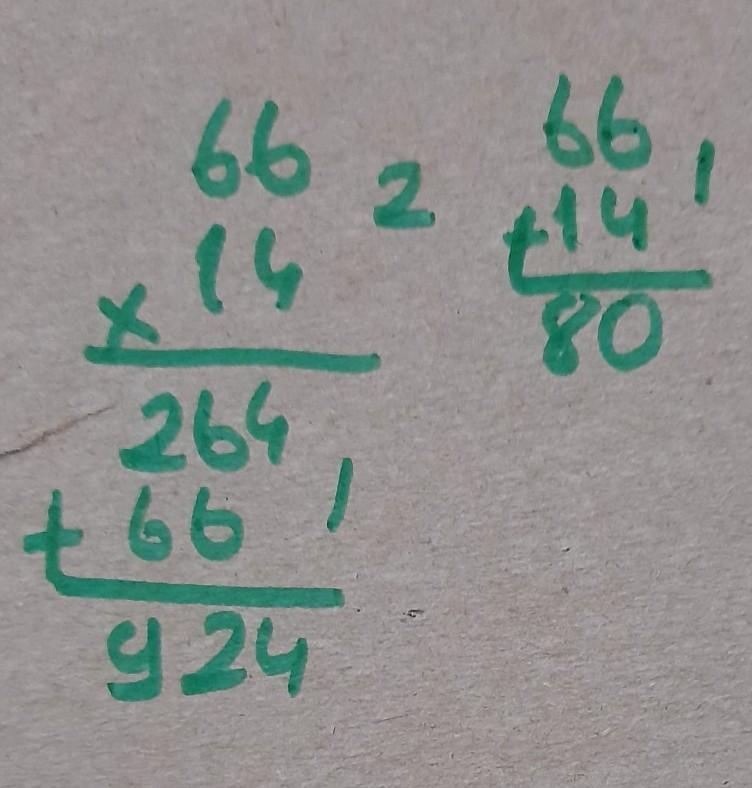 66
14 2
×
264
+ 66 1
924
66
+14 1
80